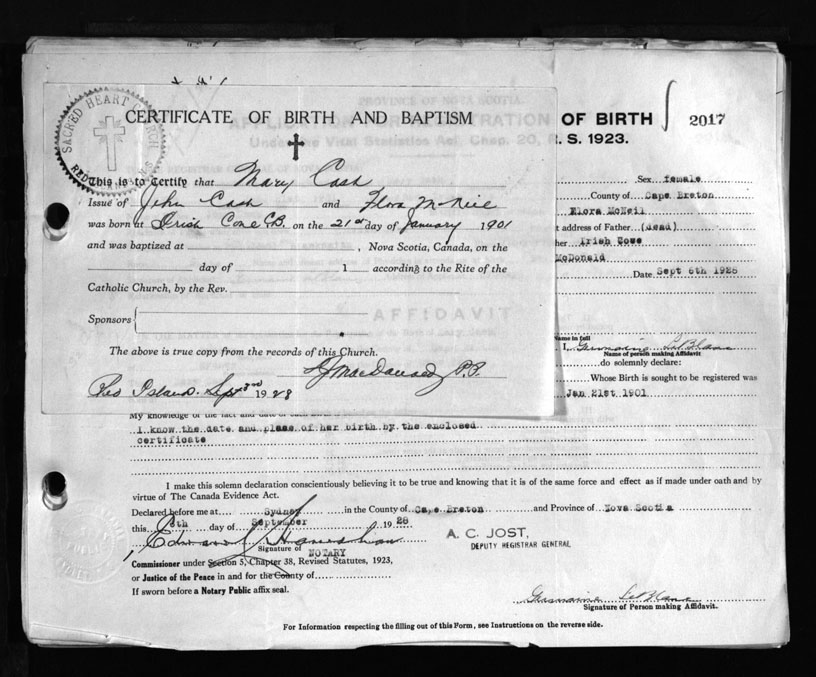 SACRED HEART CHURCH
CERTIFICATE OF BIRTH AND BAPTISM
This is to Certify that Mary Cash
Issue of John Cash and Flora McNeil
was born at Irish Cove C.B. on the 21st day of January 1901
and was baptized at , Nova Scotia, Canada, on the
day of 1 according to the Rite of the
Catholic Church, by the Rev.
Sponsors
The above is true copy from the records of this Church.
P.P.
Red Islands. Sept 3rd 1928
PROVINCE OF NOVA SCOTIA
OF BIRTH
2017
S. 1923.
Sex female
County of Cape Breton
Flora McNeil
address of Father (dead)
Irish Cove
McDonald
Date Sept 6th 1928
AFFIDAVIT
Name in full
I, Germaine LeBlanc
Name of person making Affidavit
do solemnly declare:
Whose Birth is sought to be registered was
Jan 21st 1901
My knowledge of the fact and date
I know the date and place of her birth by the enclosed
certificate
I make this solemn declaration conscientiously believing it to be true and knowing that it is of the same force and effect as if made under oath and by
virtue of The Canada Evidence Act.
Declared before me at Sydney in the County of Cape Breton and Province of Nova Scotia
this 6th day of September 1928
Signature of NOTARY
A. C. JOST,
DEPUTY REGISTRAR GENERAL
Commissioner under Section 5, Chapter 38, Revised Statutes, 1923,
or Justice of the Peace in and for the County of
If sworn before a Notary Public affix seal.
Germaine LeBlanc
Signature of Person making Affidavit.
For Information respecting the filling out of this Form, see Instructions on the reverse side.